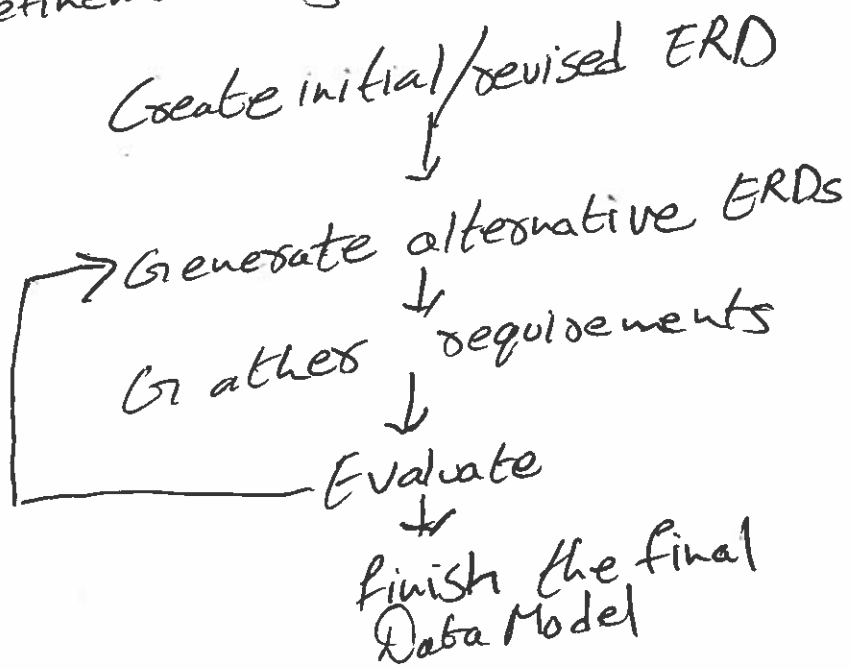 Create initial/revised ERD
Generate alternative ERDs
Gather requirements
Evaluate
finish the final
Data Model